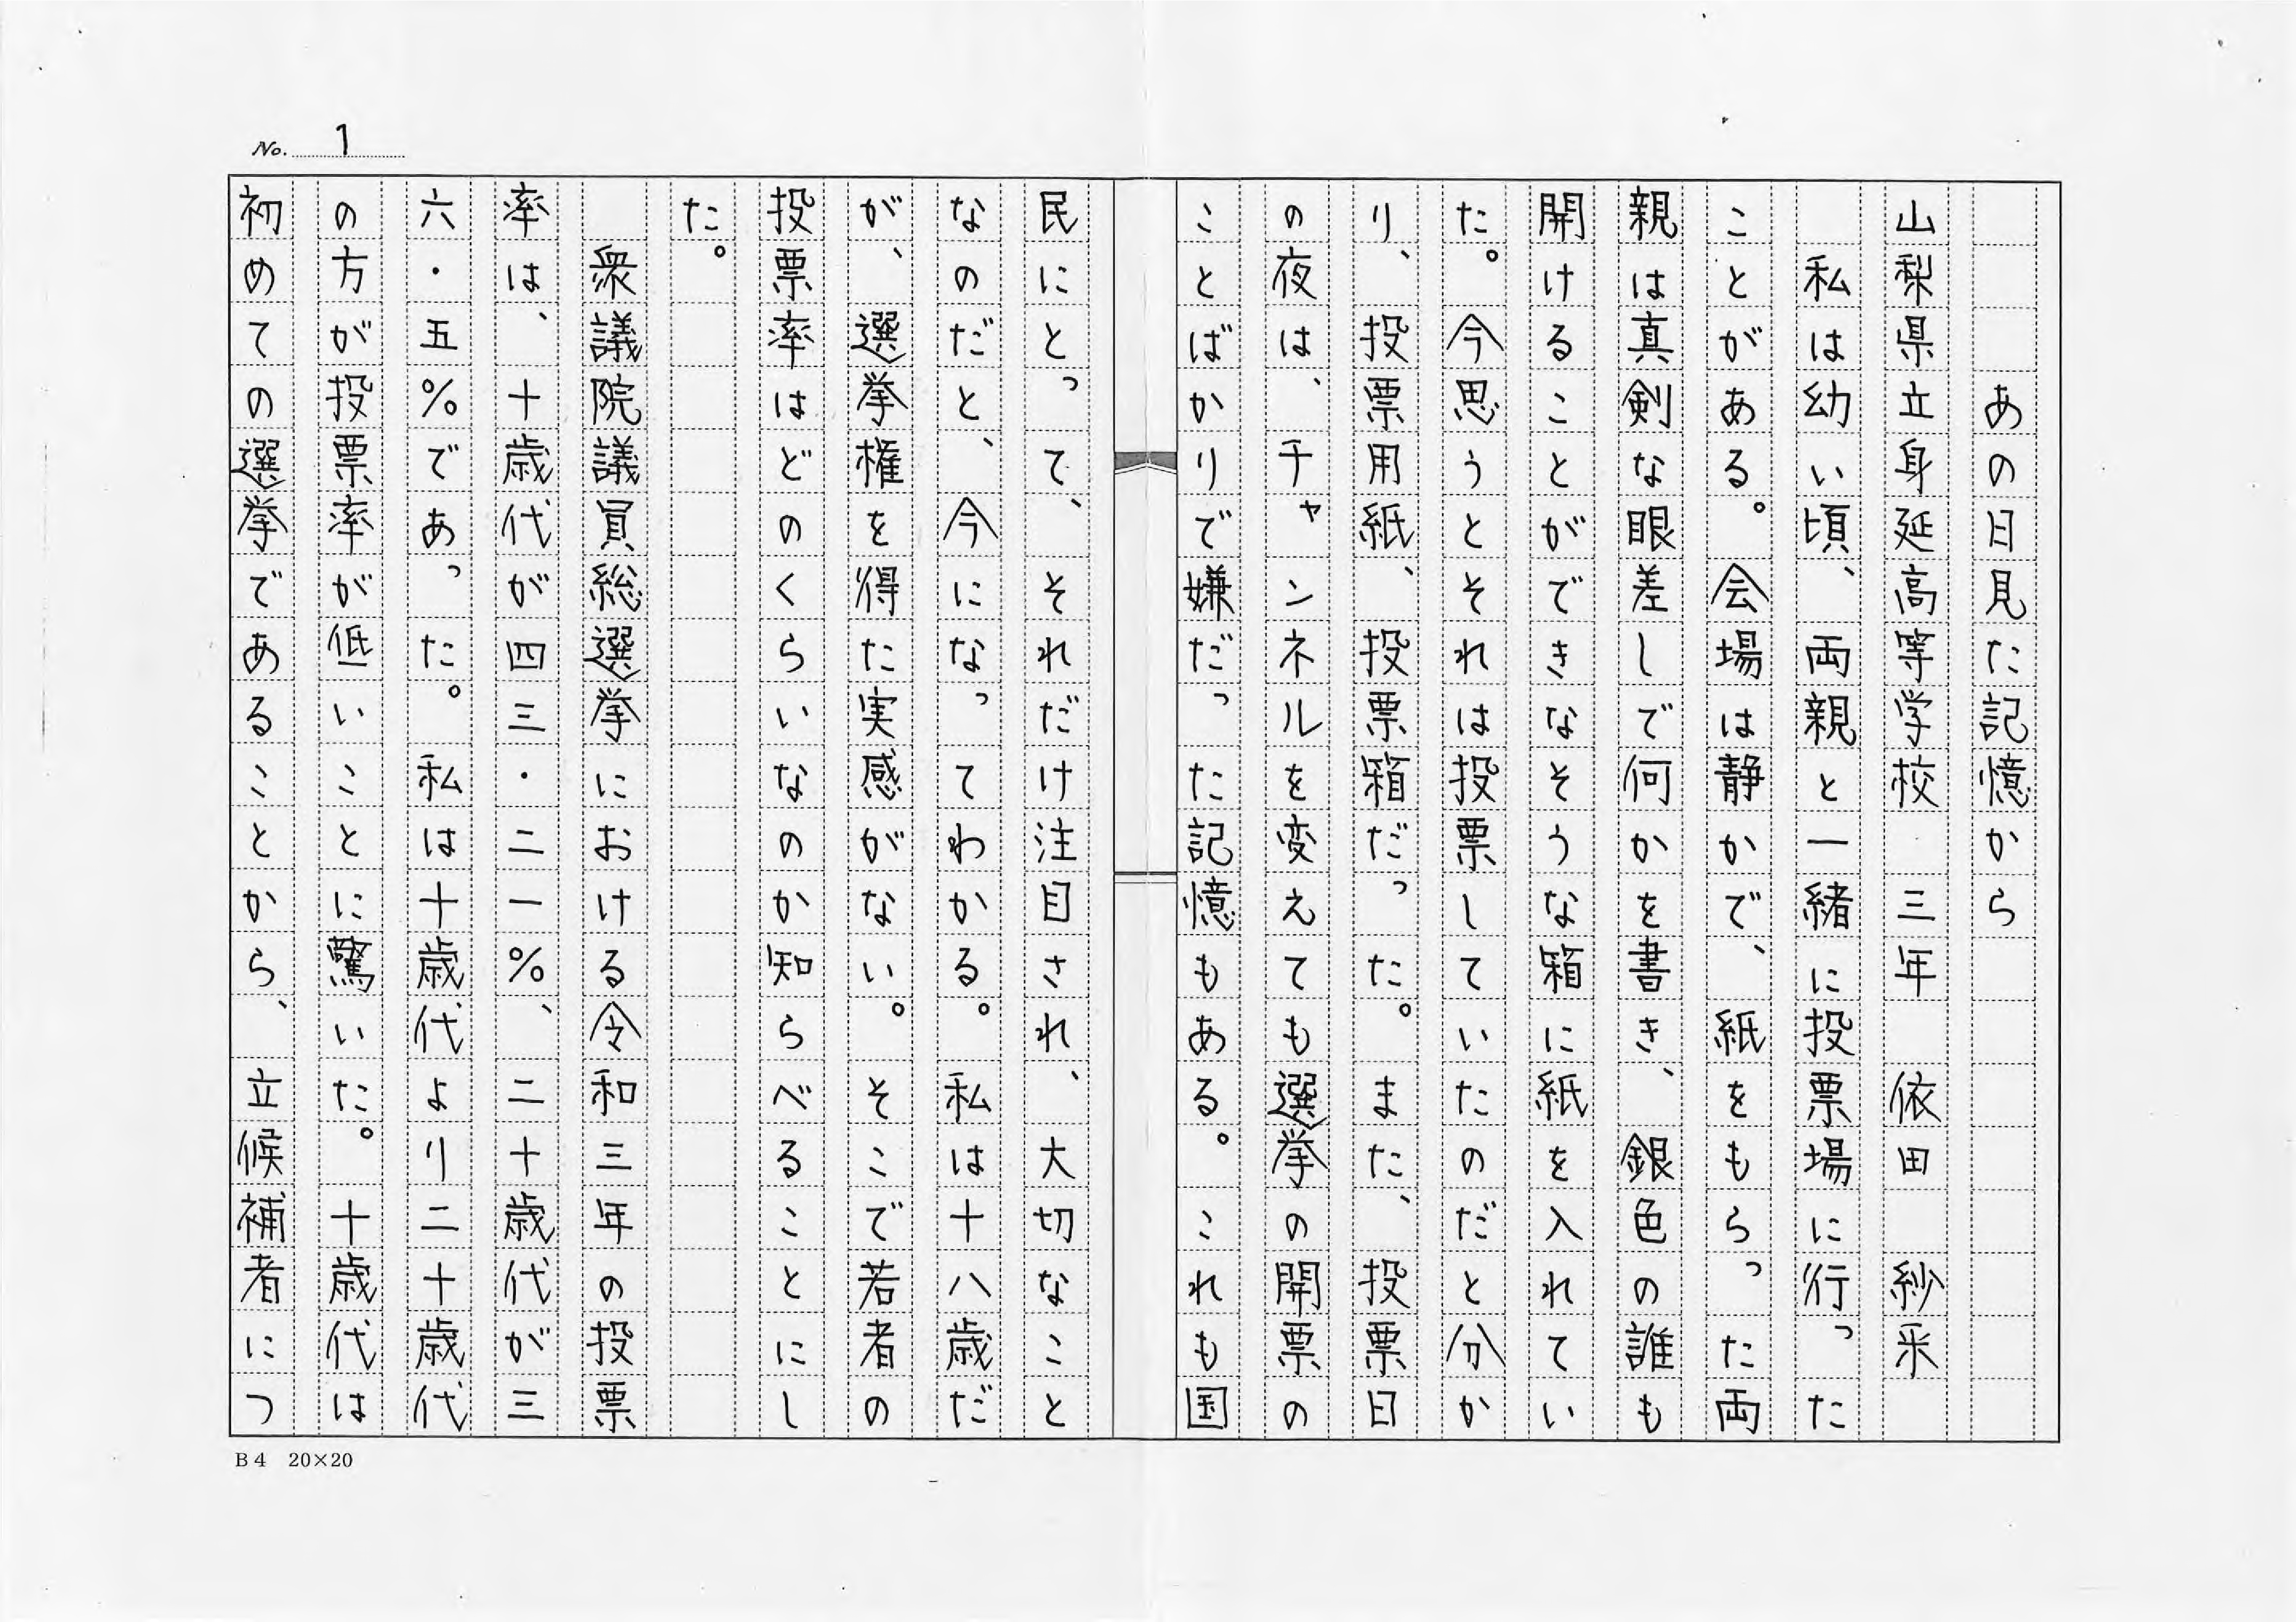 No. 1
あの日見た記憶から
山梨県立身延高等学校 三年 依田 紗采
私は幼い頃、両親と一緒に投票場に行った
ことがある。会場は静かで、紙をもらった両
親は真剣な眼差しで何かを書き、銀色の誰も
開けることができなそうな箱に紙を入れてい
た。今思うとそれは投票していたのだと分か
り、投票用紙、投票箱だった。また、投票日
の夜は、チャンネルを変えても選挙の開票の
ことばかりで嫌だった記憶もある。これも国
民にとって、それだけ注目され、大切なこと
なのだと、今になってわかる。私は十八歳だ
が、選挙権を得た実感がない。そこで若者の
投票率はどのくらいなのか知らべることにし
た。
衆議院議員総選挙における令和三年の投票
率は、十歳代が四三・二一%、二十歳代が三
六・五%であった。私は十歳代より二十歳代
の方が投票率が低いことに驚いた。十歳代は
初めての選挙であることから、立候補者につ
B4 20×20